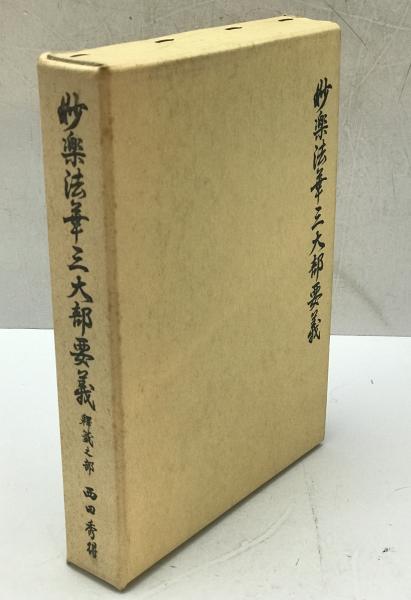 妙楽法華三大部要義
釋籖之部 西田秀
妙楽法華三大部要義